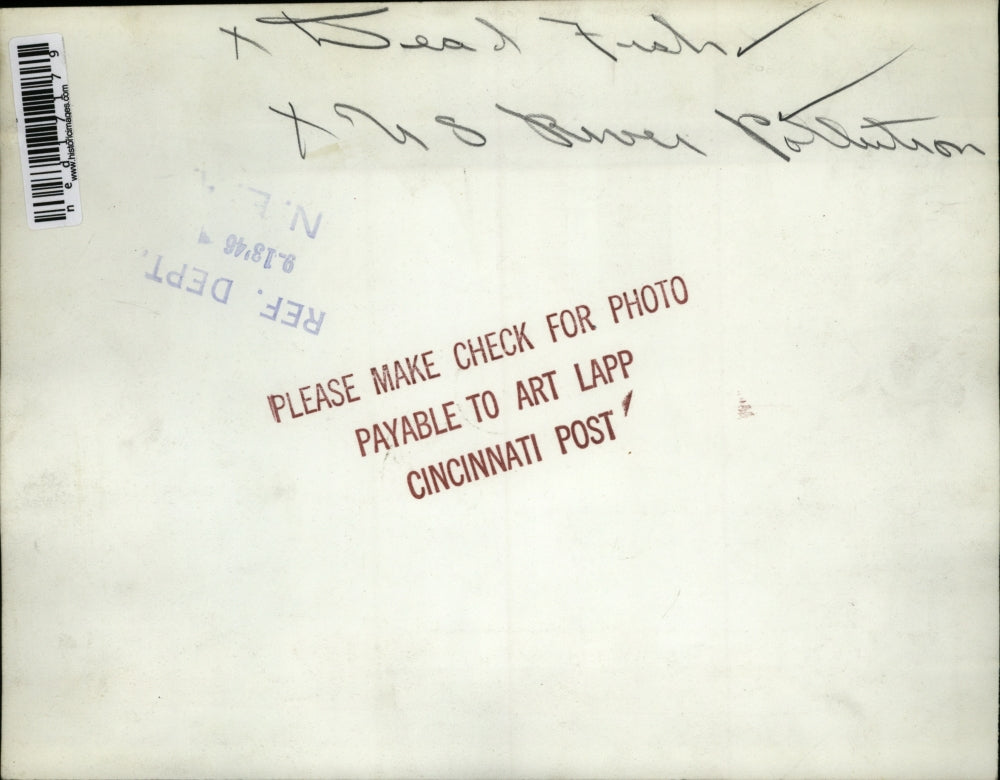 x Dead Fish ✓
x U S River Pollution ✓
ned 71779
www.historicimages.com
REF. DEPT.
9-13'46
N.E.
PLEASE MAKE CHECK FOR PHOTO
PAYABLE TO ART LAPP
CINCINNATI POST